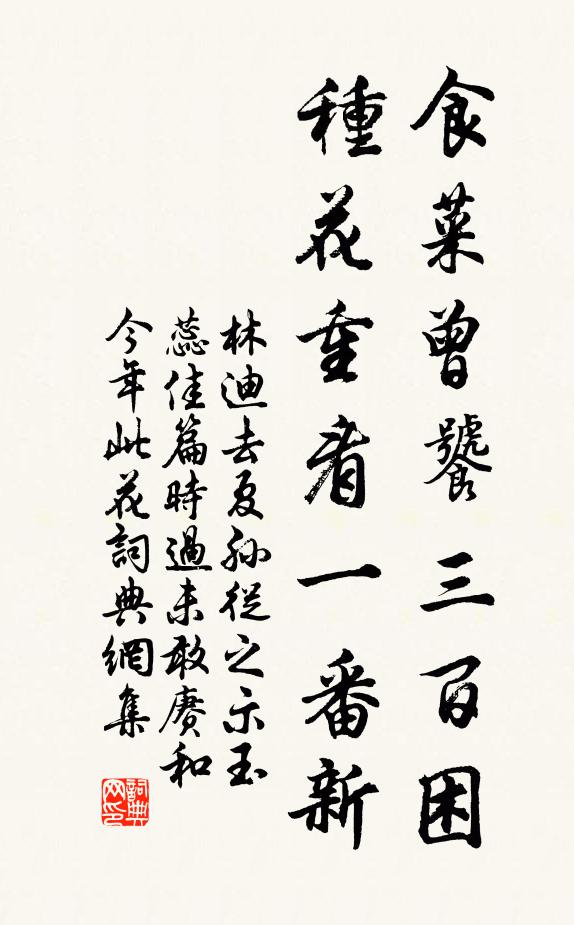 食菜曾饕三百困
種花重看一番新
林迪去夏孫從之示玉
蕊佳篇時過未敢賡和
今年此花詞典網集
詞典
网印